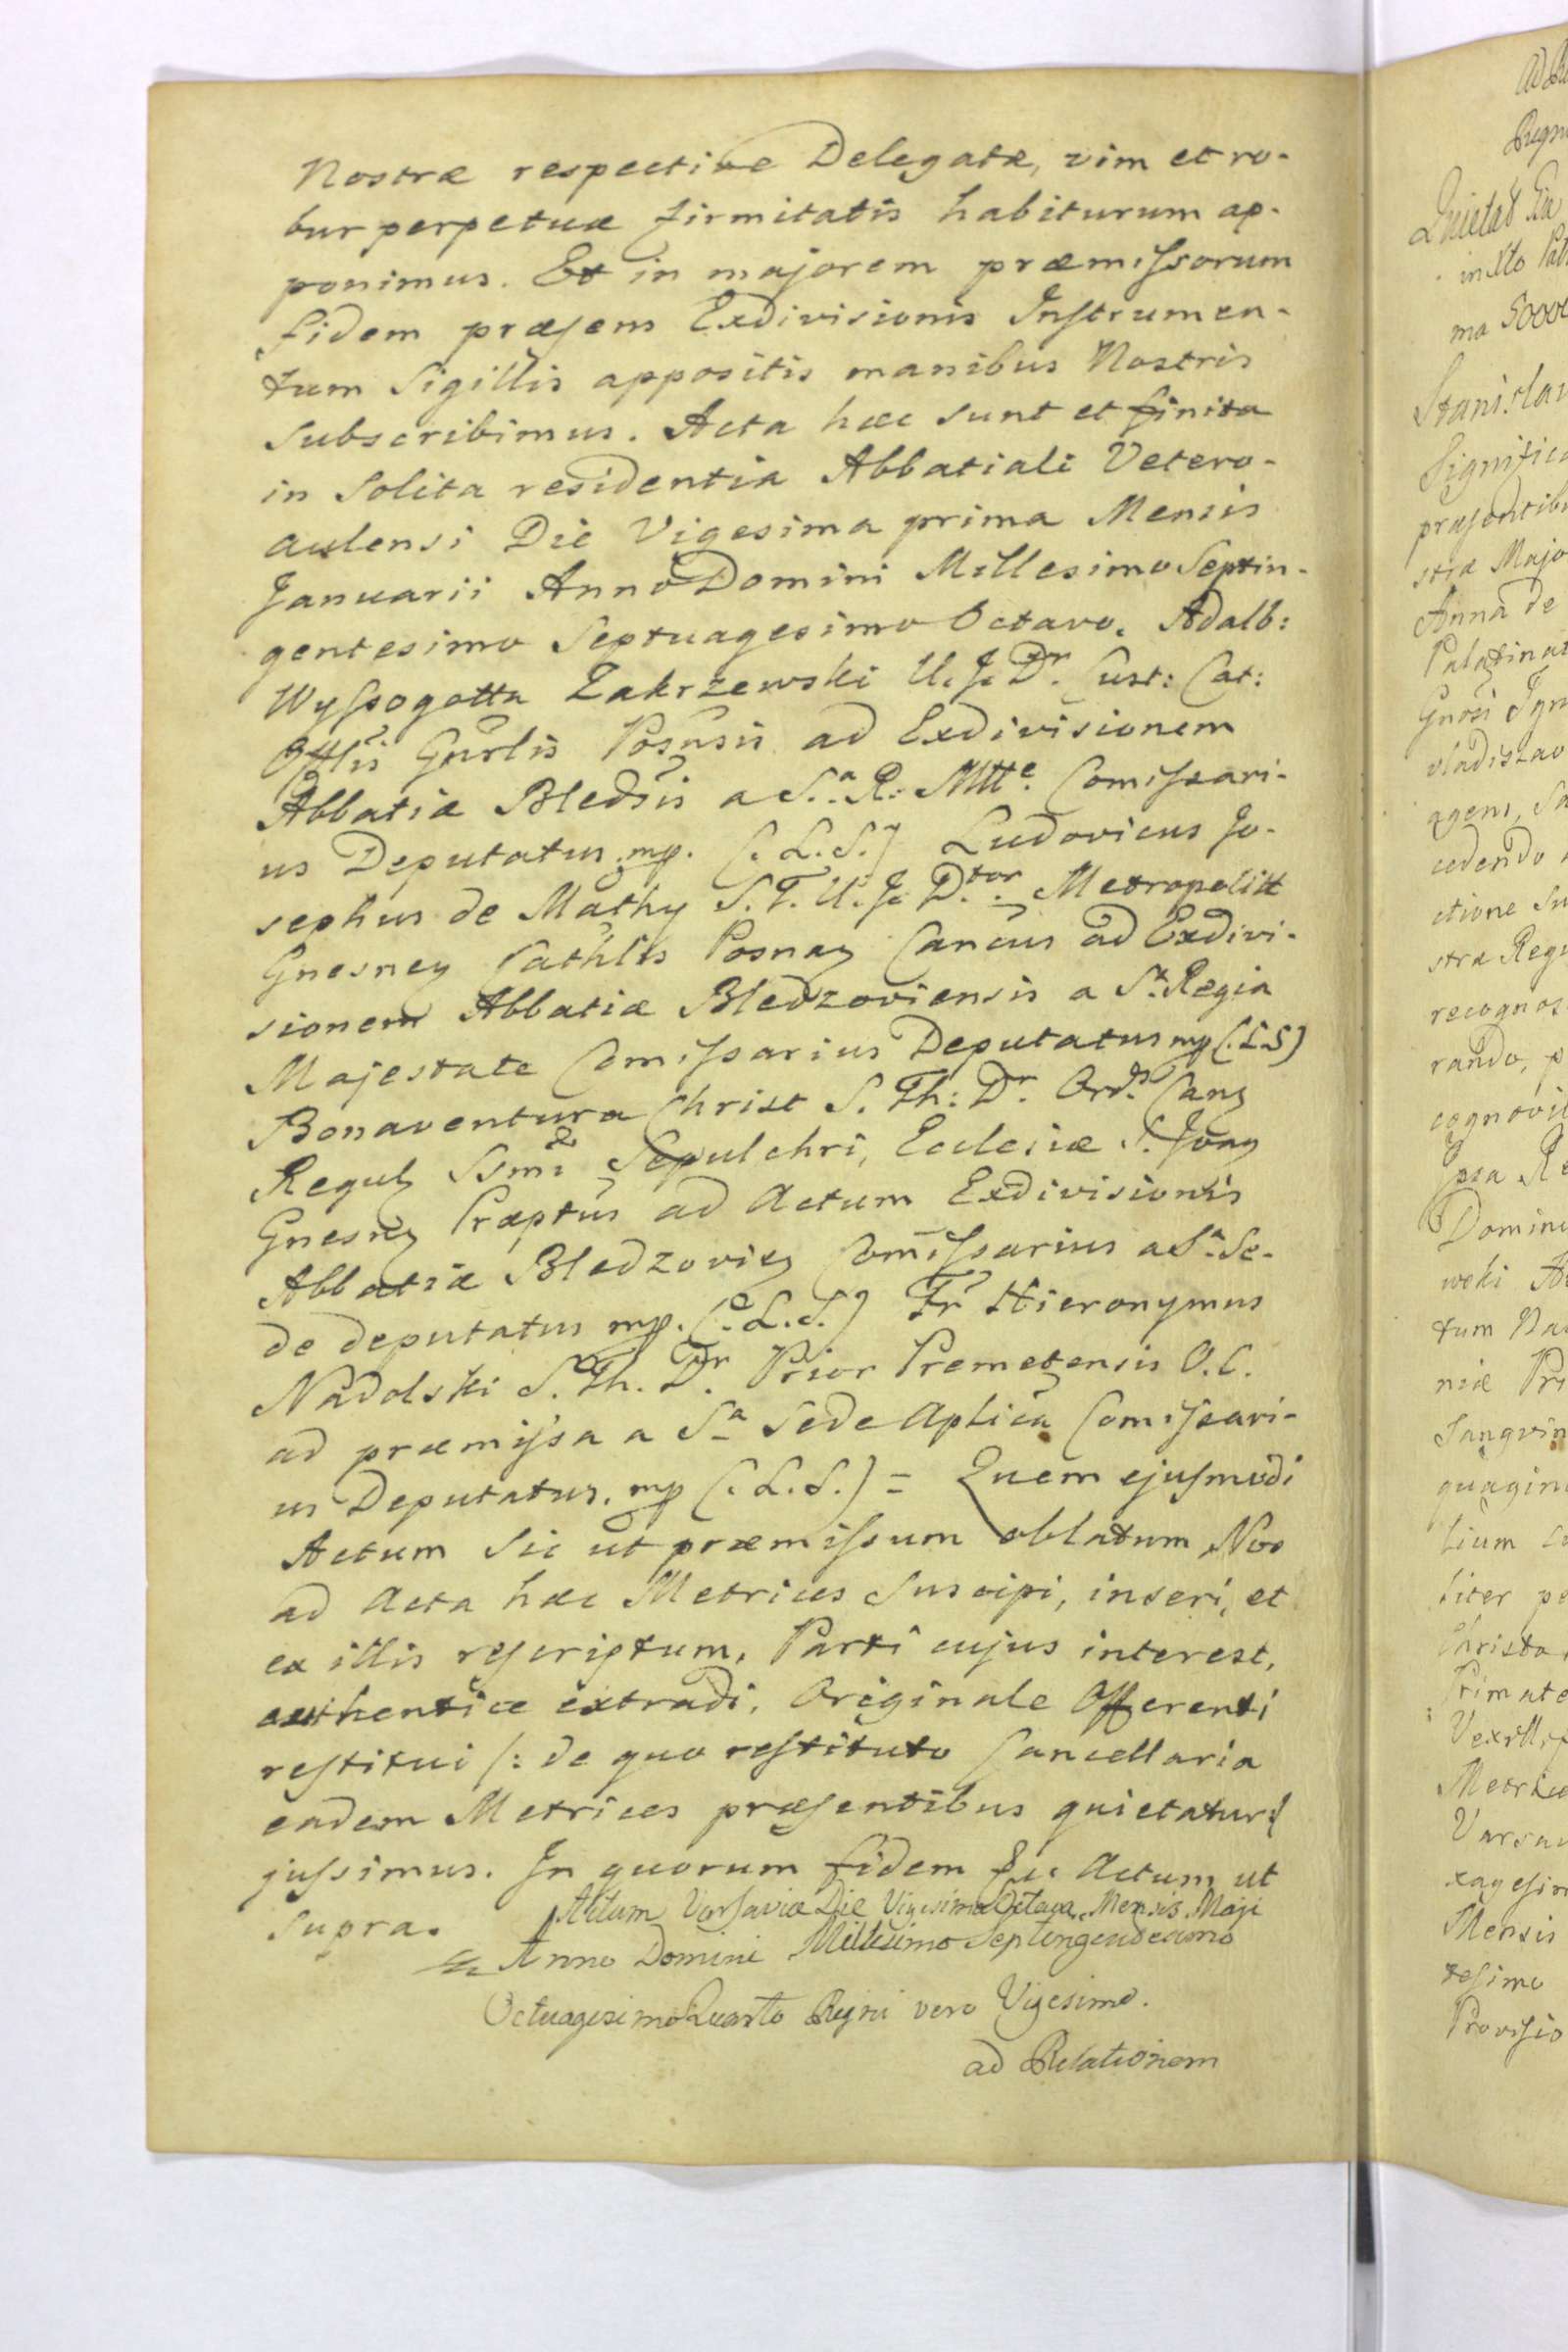 Nostræ respective Delegatæ, vim et ro-
bur perpetuæ firmitatis habiturum ap-
ponimus. Et in majorem præmiſsorum
fidem præſens Exdivisionis Inſtrumen-
tum Sigillis appositis manibus Nostris
Subscribimus. Acta hæc sunt et finita
in Solita residentia Abbatiali Vetero-
aulensi Die Vigesima prima Mensis
Januarii Anno Domini Millesimo Septin-
gentesimo Septuagesimo Octavo. Adalb:
Wyſsogotta Zakrzewski U. J. Dr. Cust: Cat:
Offlis Gnrlis Posnsis ad Exdivisionem
Abbatiæ Bledsis a S.a R: Mtte. Comiſsari-
us Deputatus mp. (: L. S.) Ludovicus Jo-
sephus de Mathy S. T. U. J. Dtor. Metropolitt
Gnesney Cathlis Posnay Cancus ad Exdivi-
sionem Abbatiæ Bledzoviensis a Sa. Regia
Majestate Comiſsarius Deputatus mp (: L S)
Bonaventura Christ S. Th: Dr. Ord. Cang
Reguly Ssmi Sepulchri, Ecclesiæ S. Jony
Gnesny Præptus ad Actum Exdivisionis
Abbatiæ Bledzoviey Comiſsarius a Sa. Se-
de deputatus mp. (: L. S.) Fr Hieronymus
Nadolski S. Th. Dr. Prior Premetensis O. C.
ad præmiſsa a Sa Sede Aplica Comiſsari-
us Deputatus, mp (: L. S.) = Quem ejuſmodi
Actum Sic ut præmiſsum oblatum Nos
ad Acta hæc Metrices Suscipi, inseri, et
ex illis reſcriptum, Parti cujus interest,
authentice extradi, Originale Offerenti
reſtitui /: de quo reſtituto Cancellaria
eadem Metrices præſentibus quietatur :/
juſsimus. In quorum fidem &c Actum ut
Supra. Actum Varſaviæ Die Vigesima Octava Mensis Maji
Anno Domini Millesimo Septingentesimo
Octuagesimo Quarto Regni vero Vigesimo.
ad Relationem
Regn
Quietat
in Xto
ma 5000
Stanislau
Significa
præſentib
stræ Majo
Anna de
Palatinat
Gnosi Ign
vladislav
agens, Sa
cedendo
ctione Su
stræ Regi
recognos
rando, p
cognovit
Domin
wski
tum Na
niæ Pri
Sangvin
quagin
lium
liter pe
Christo
Primate
Metrice
Varsav
xageſim
Mensis
teſimo
Proviſio